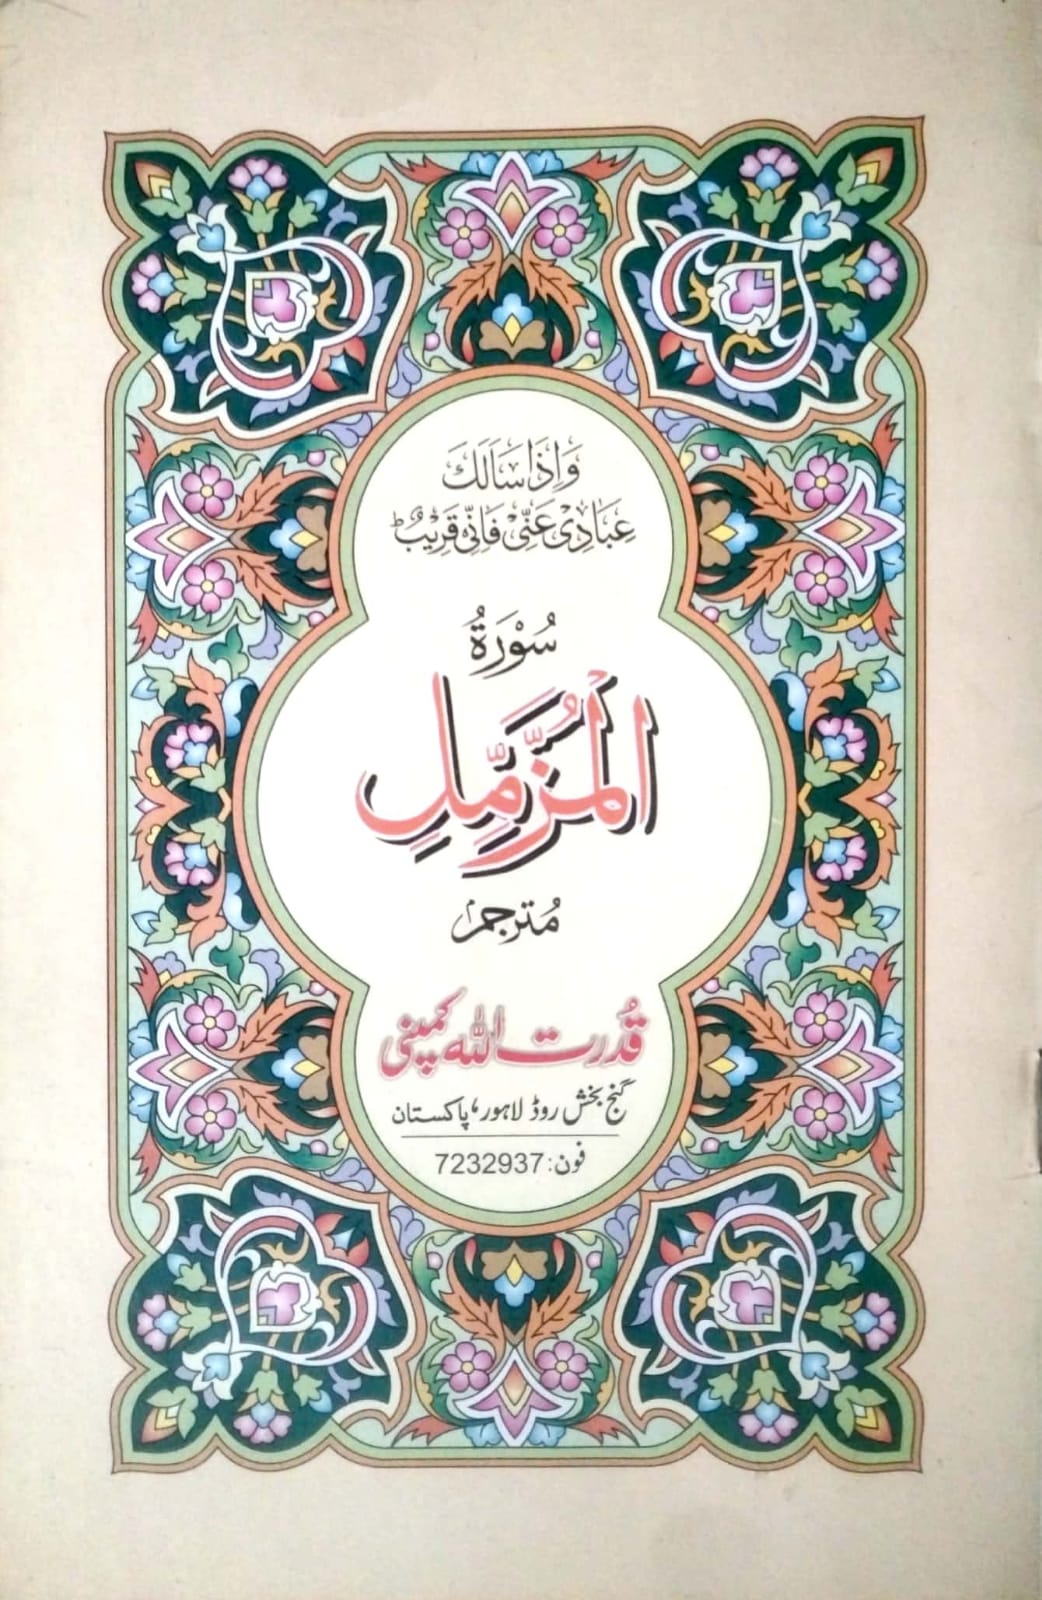 وَاِذَا سَاَلَكَ
عِبَادِیْ عَنِّیْ فَاِنِّیْ قَرِیْبٌ ؕ
سُوْرَةُ
الْمُزَّمِّلِ
مُترجم
قُدرت اللہ کمپنی
گنج بخش روڈ لاہور، پاکستان
فون: 7232937